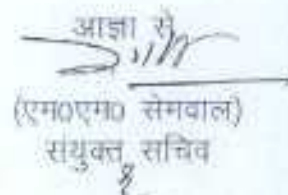 आज्ञा से
(एम0एम0 सेमवाल)
संयुक्त सचिव